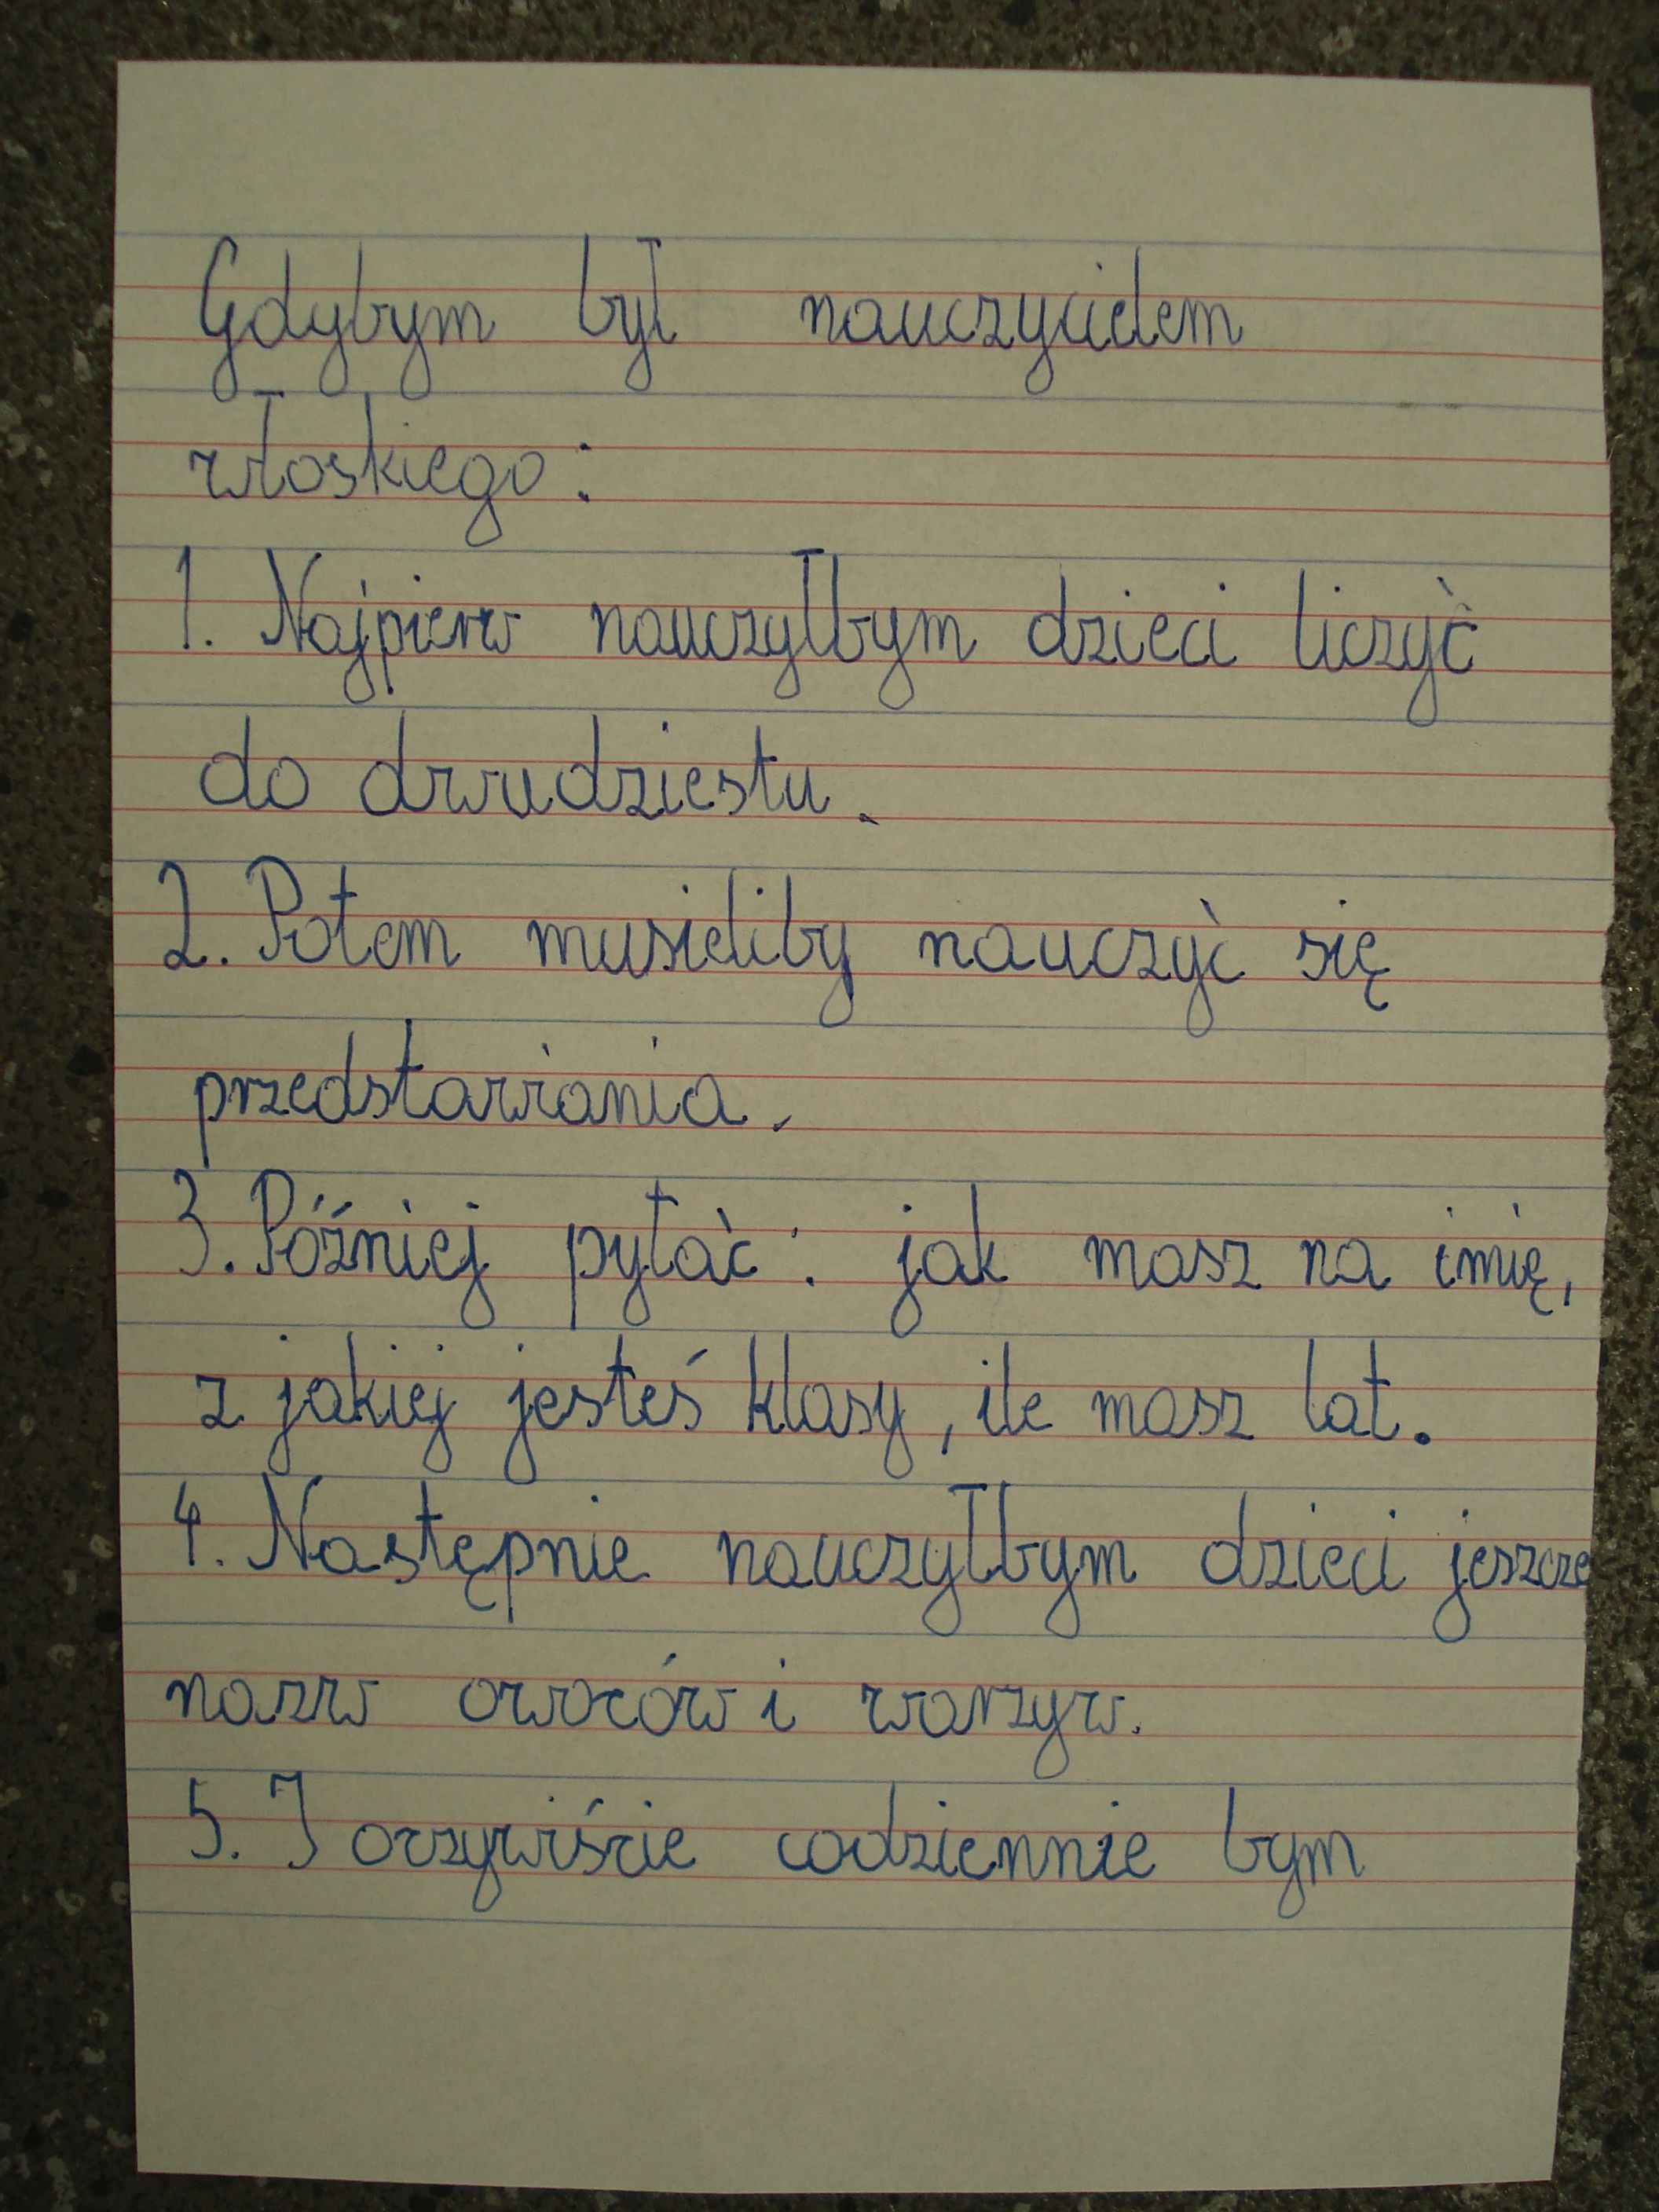 Gdybym był nauczycielem
włoskiego:
1. Najpierw nauczyłbym dzieci liczyć
do dwudziestu.
2. Potem musieliby nauczyć się
przedstawiania.
3. Później pytać: jak masz na imię,
z jakiej jesteś klasy, ile masz lat.
4. Następnie nauczyłbym dzieci jeszcze
nazw owoców i warzyw.
5. I oczywiście codziennie bym